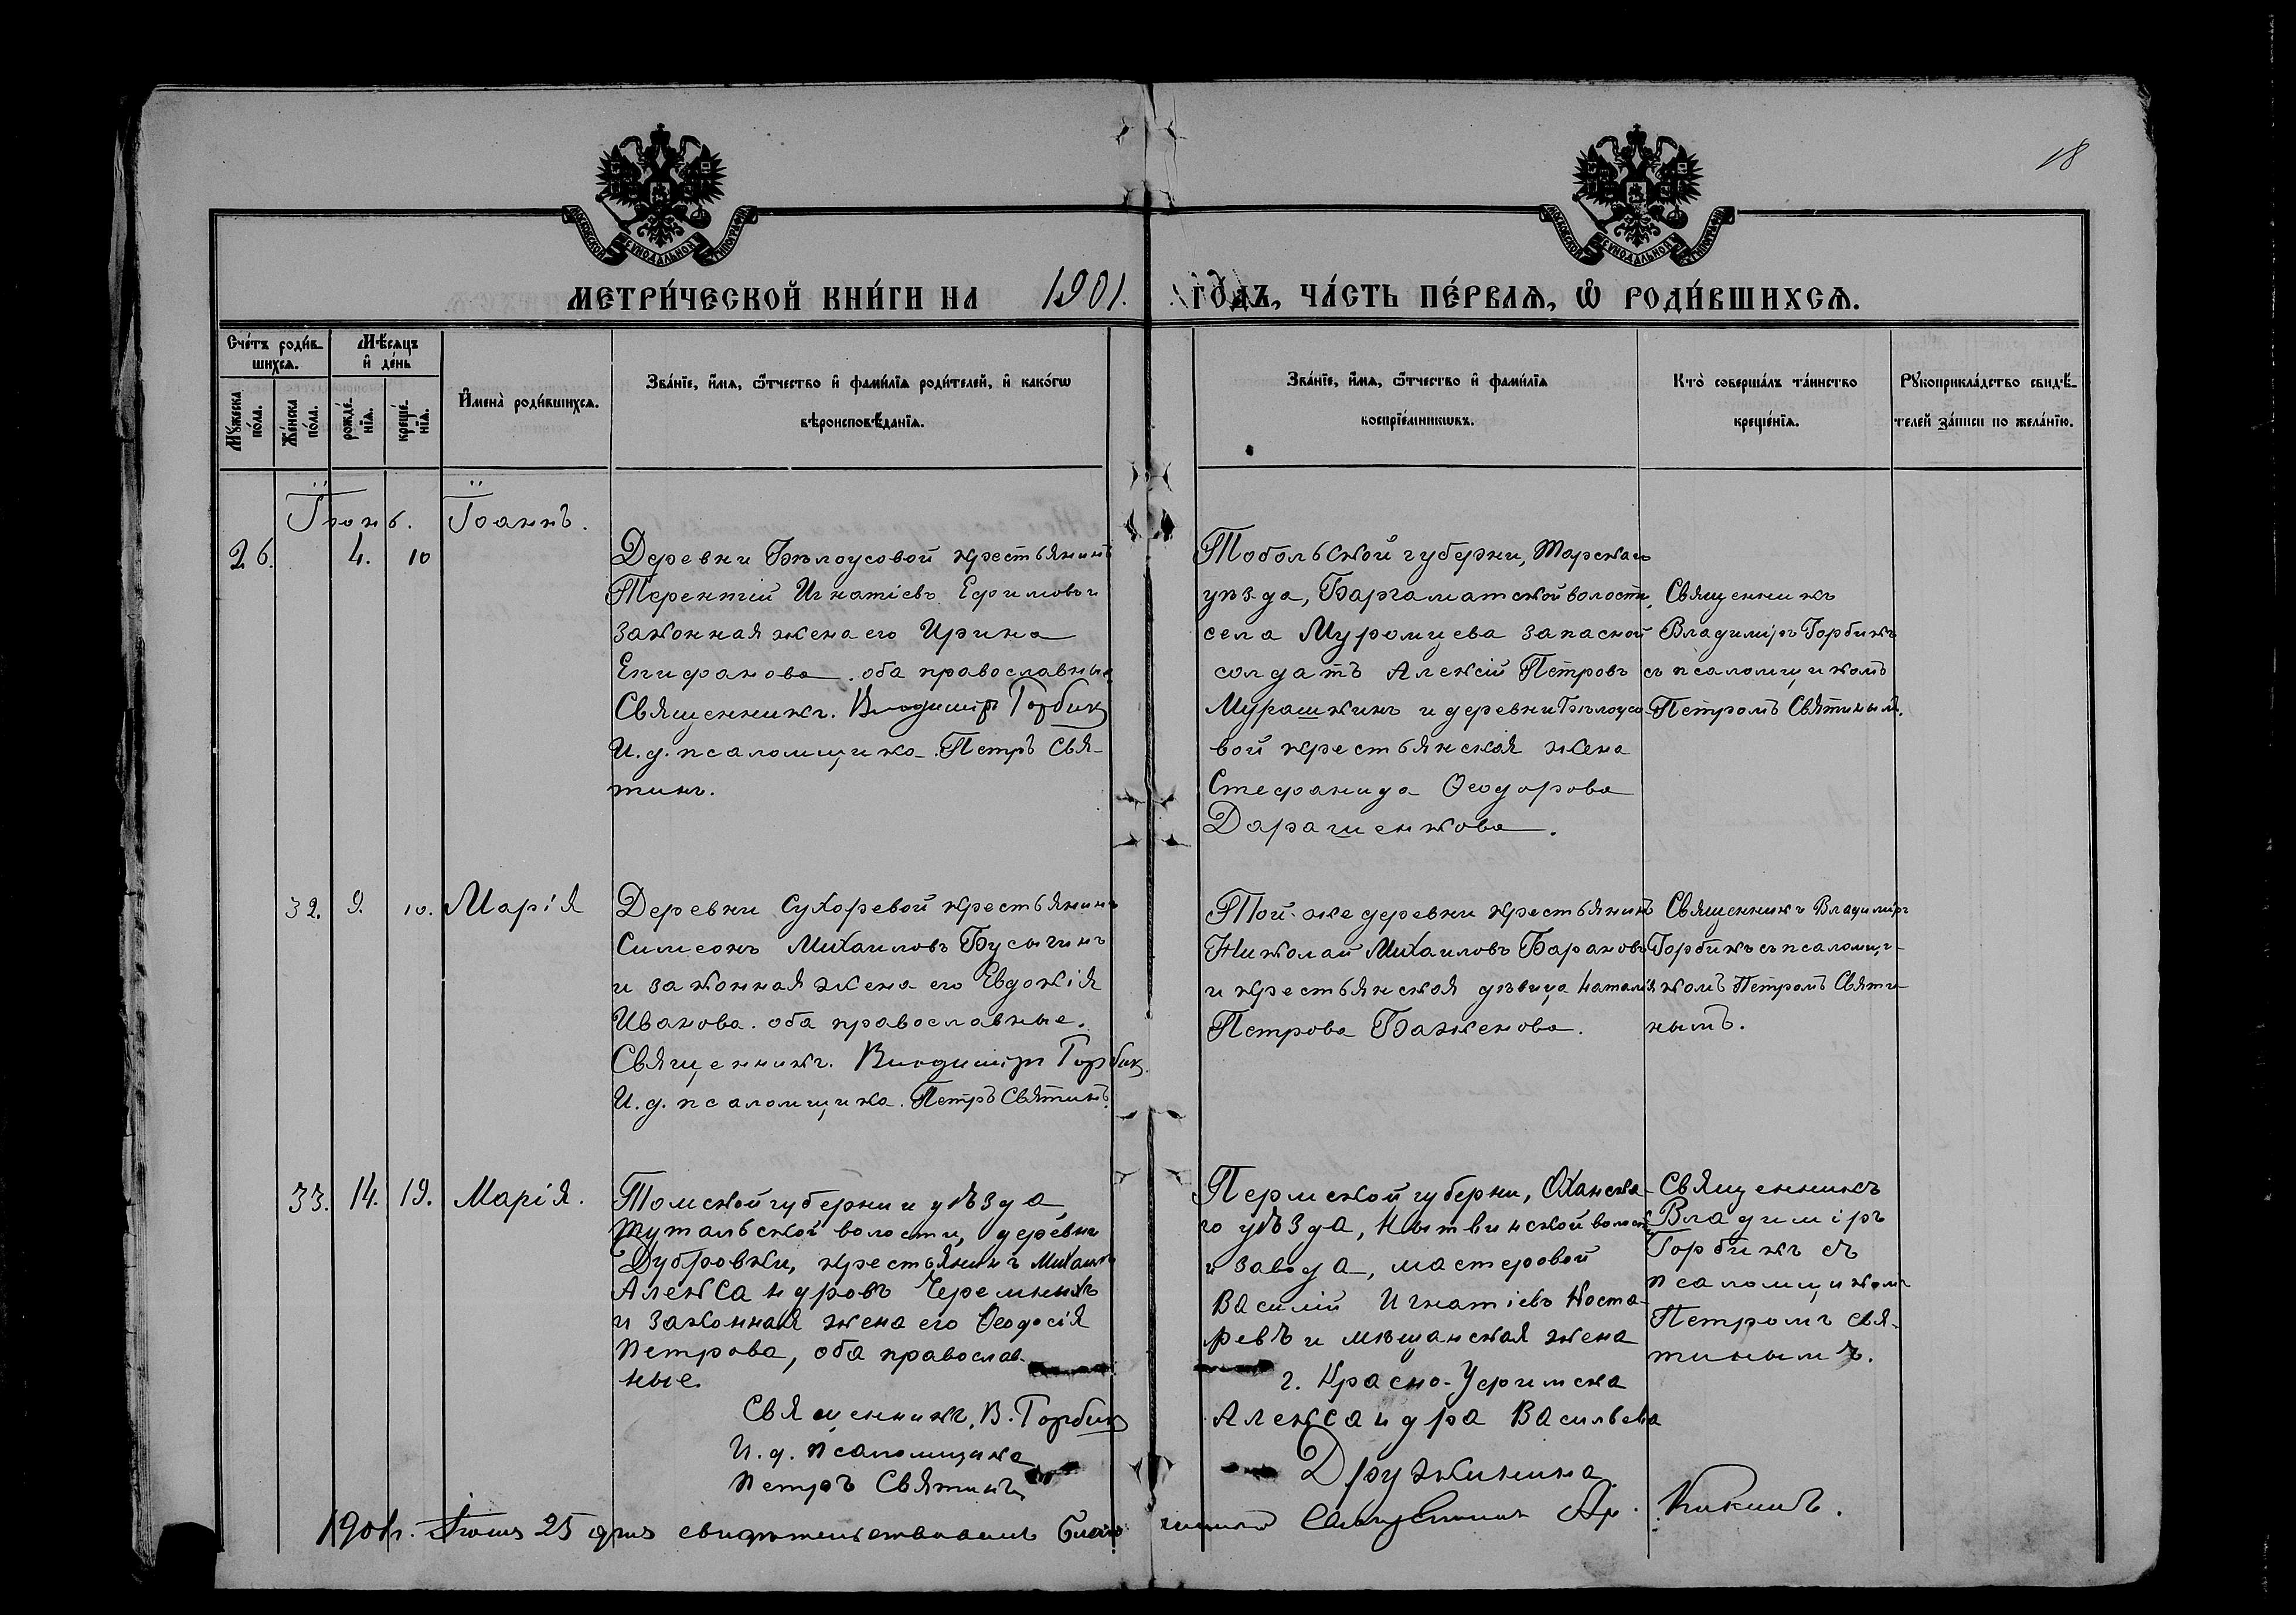 18
МОСКОВСКОЙ СѴНОДАЛЬНОЙ ТИПОГРАФІИ
МОСКОВСКОЙ СѴНОДАЛЬНОЙ ТИПОГРАФІИ
МЕТРИ́ЧЕСКОЙ КНИ́ГИ НА 1901. ГО́ДЪ, ЧА́СТЬ ПЕ́РВАѦ, Ѡ РОДИ́ВШИХСѦ.
Сче́тъ роди́в-
шихсѧ.
Мѣ́сѧцъ
и҆ де́нь
Мꙋ́жеска
по́ла.
Же́нска
по́ла.
рожде́-
нїѧ.
креще́-
нїѧ.
И҆мена̀ роди́вшихсѧ.
Зва́нїе, и҆́мѧ, ѻ҆́тчество и҆ фами́лїѧ роди́телей, и҆ како́гѡ
вѣроисповѣ́данїѧ.
Зва́нїе, и҆́мѧ, ѻ҆́тчество и҆ фами́лїѧ
воспрїе́мникѡвъ.
Кто̀ соверша́лъ та́инство
креще́нїѧ.
Рꙋкоприкла́дство свидѣ́-
телей за́писи по жела́нїю.
Іюнь.
26. 4. 10 Іоаннъ.
Деревни Бѣлоусовой крестьянинъ
Терентій Игнатіевъ Ефимовъ и
законная жена его Ирина
Епифанова. оба православные
Священникъ. Владиміръ Горбик
И. д. псаломщика. Петръ Свя-
тинъ.
Тобольской губерни, Тарскаго
уѣзда, Баргаматской волости,
села Муромцева запасной
солдатъ Алексій Петровъ
Мурашкинъ и деревни Бѣлоусо-
вой крестьянская жена
Стефанида Ѳеодорова
Дарашенкова.
Священникъ
Владиміръ Горбикъ
съ псаломщикомъ
Петромъ Святинымъ.
32. 9. 10. Марія
Деревни Сухоревой крестьянинъ
Симеонъ Михаиловъ Бусыгинъ
и законная жена его Евдокія
Иванова. оба православные.
Священникъ. Владиміръ Горбик.
И. д. псаломщика. Петръ Святинъ.
Той-же деревни крестьянинъ
Николай Михаиловъ Барановъ
и крестьянская дѣвица Наталія
Петрова Баженова.
Священникъ Владиміръ
Горбикъ съ псаломщи-
комъ Петромъ Святи-
нымъ.
33. 14. 19. Марія.
Томской губерни и уѣзда,
Тутальской волости, деревни
Дубровки, крестьянинъ Михаилъ
Александровъ Черемныхъ
и законная жена его Ѳеодосія
Петрова, оба православ-
ные.
Священникъ, В. Горбик
И. д. псаломщика
Петръ Святинъ
Пермской губерни, Оханска-
го уѣзда, Нытвинской волости
и завода, мастеровой
Василій Игнатіевъ Коста-
ревъ и мѣщанская жена
г. Красно-Уфимска
Александра Васильева
Дружинина
Священникъ
Владиміръ
Горбикъ съ
псаломщикомъ
Петромъ Свя-
тинымъ.
1901г. Іюля 25 дня свидѣтельствовалъ Благочинный Священникъ